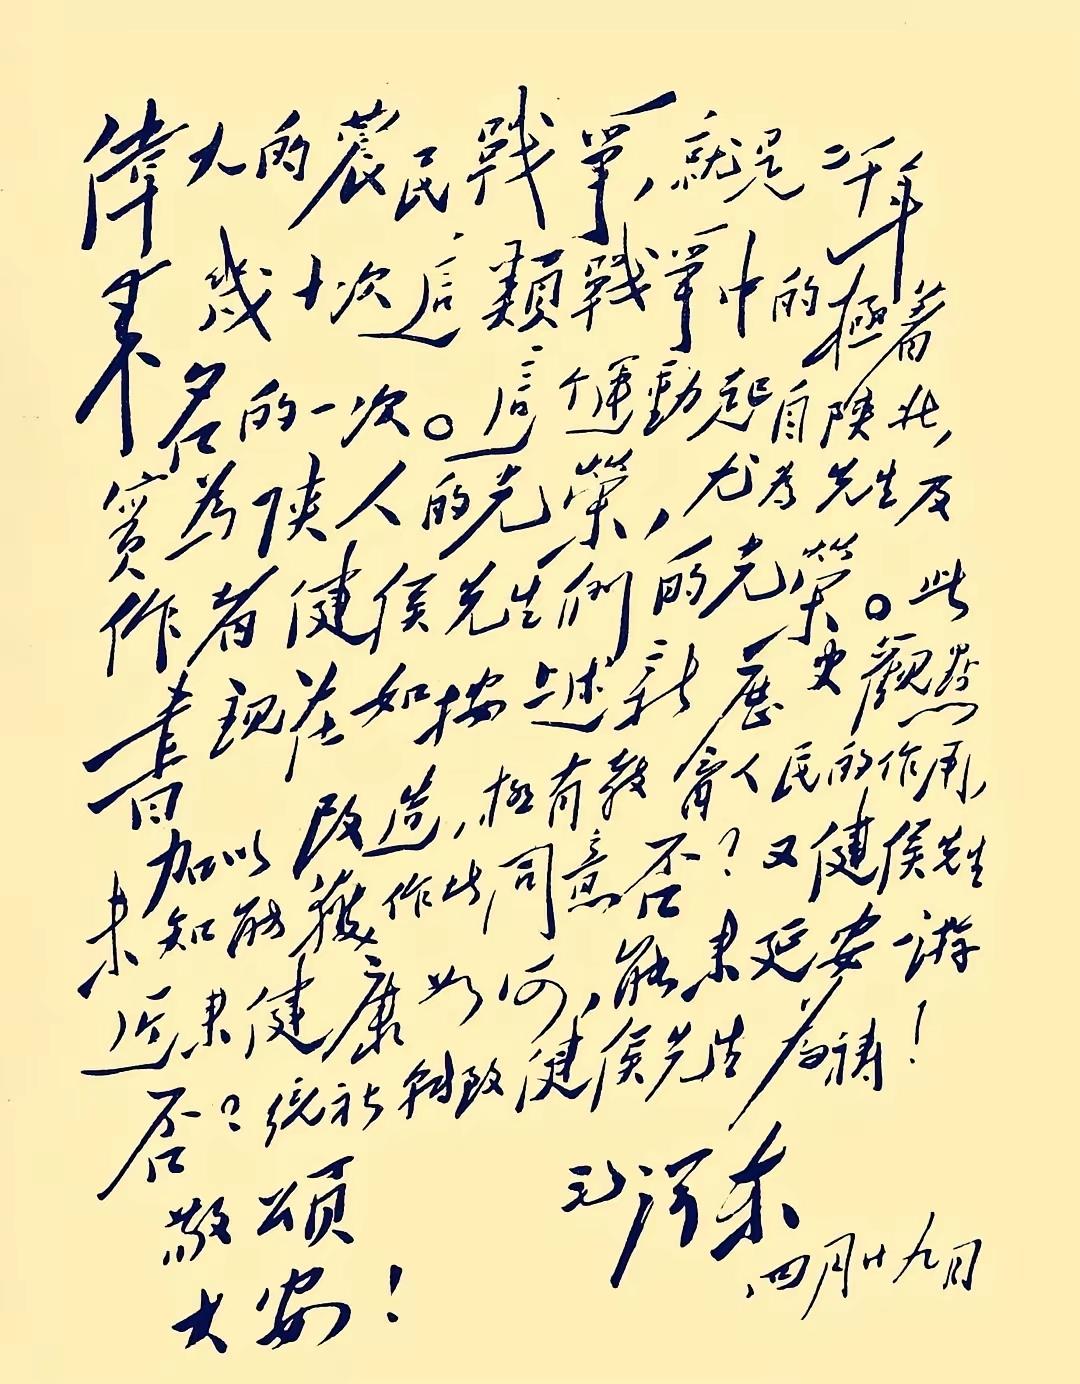 偉大的農民戰爭,就是二千年
来幾十次這類戰爭中的極著
名的一次。這个運動起自陕北,
實為陕人的光榮,尤為先生及
作者健侯先生們的光榮。此
書現在如按上述新歷史觀點
加以改造,極有教育人民的作用,
未知能獲作者同意否?又健侯先生
近来健康如何,能来延安一游
否?統祈轉致健侯先生為禱!
敬頌
大安!
毛泽东
四月廿九日